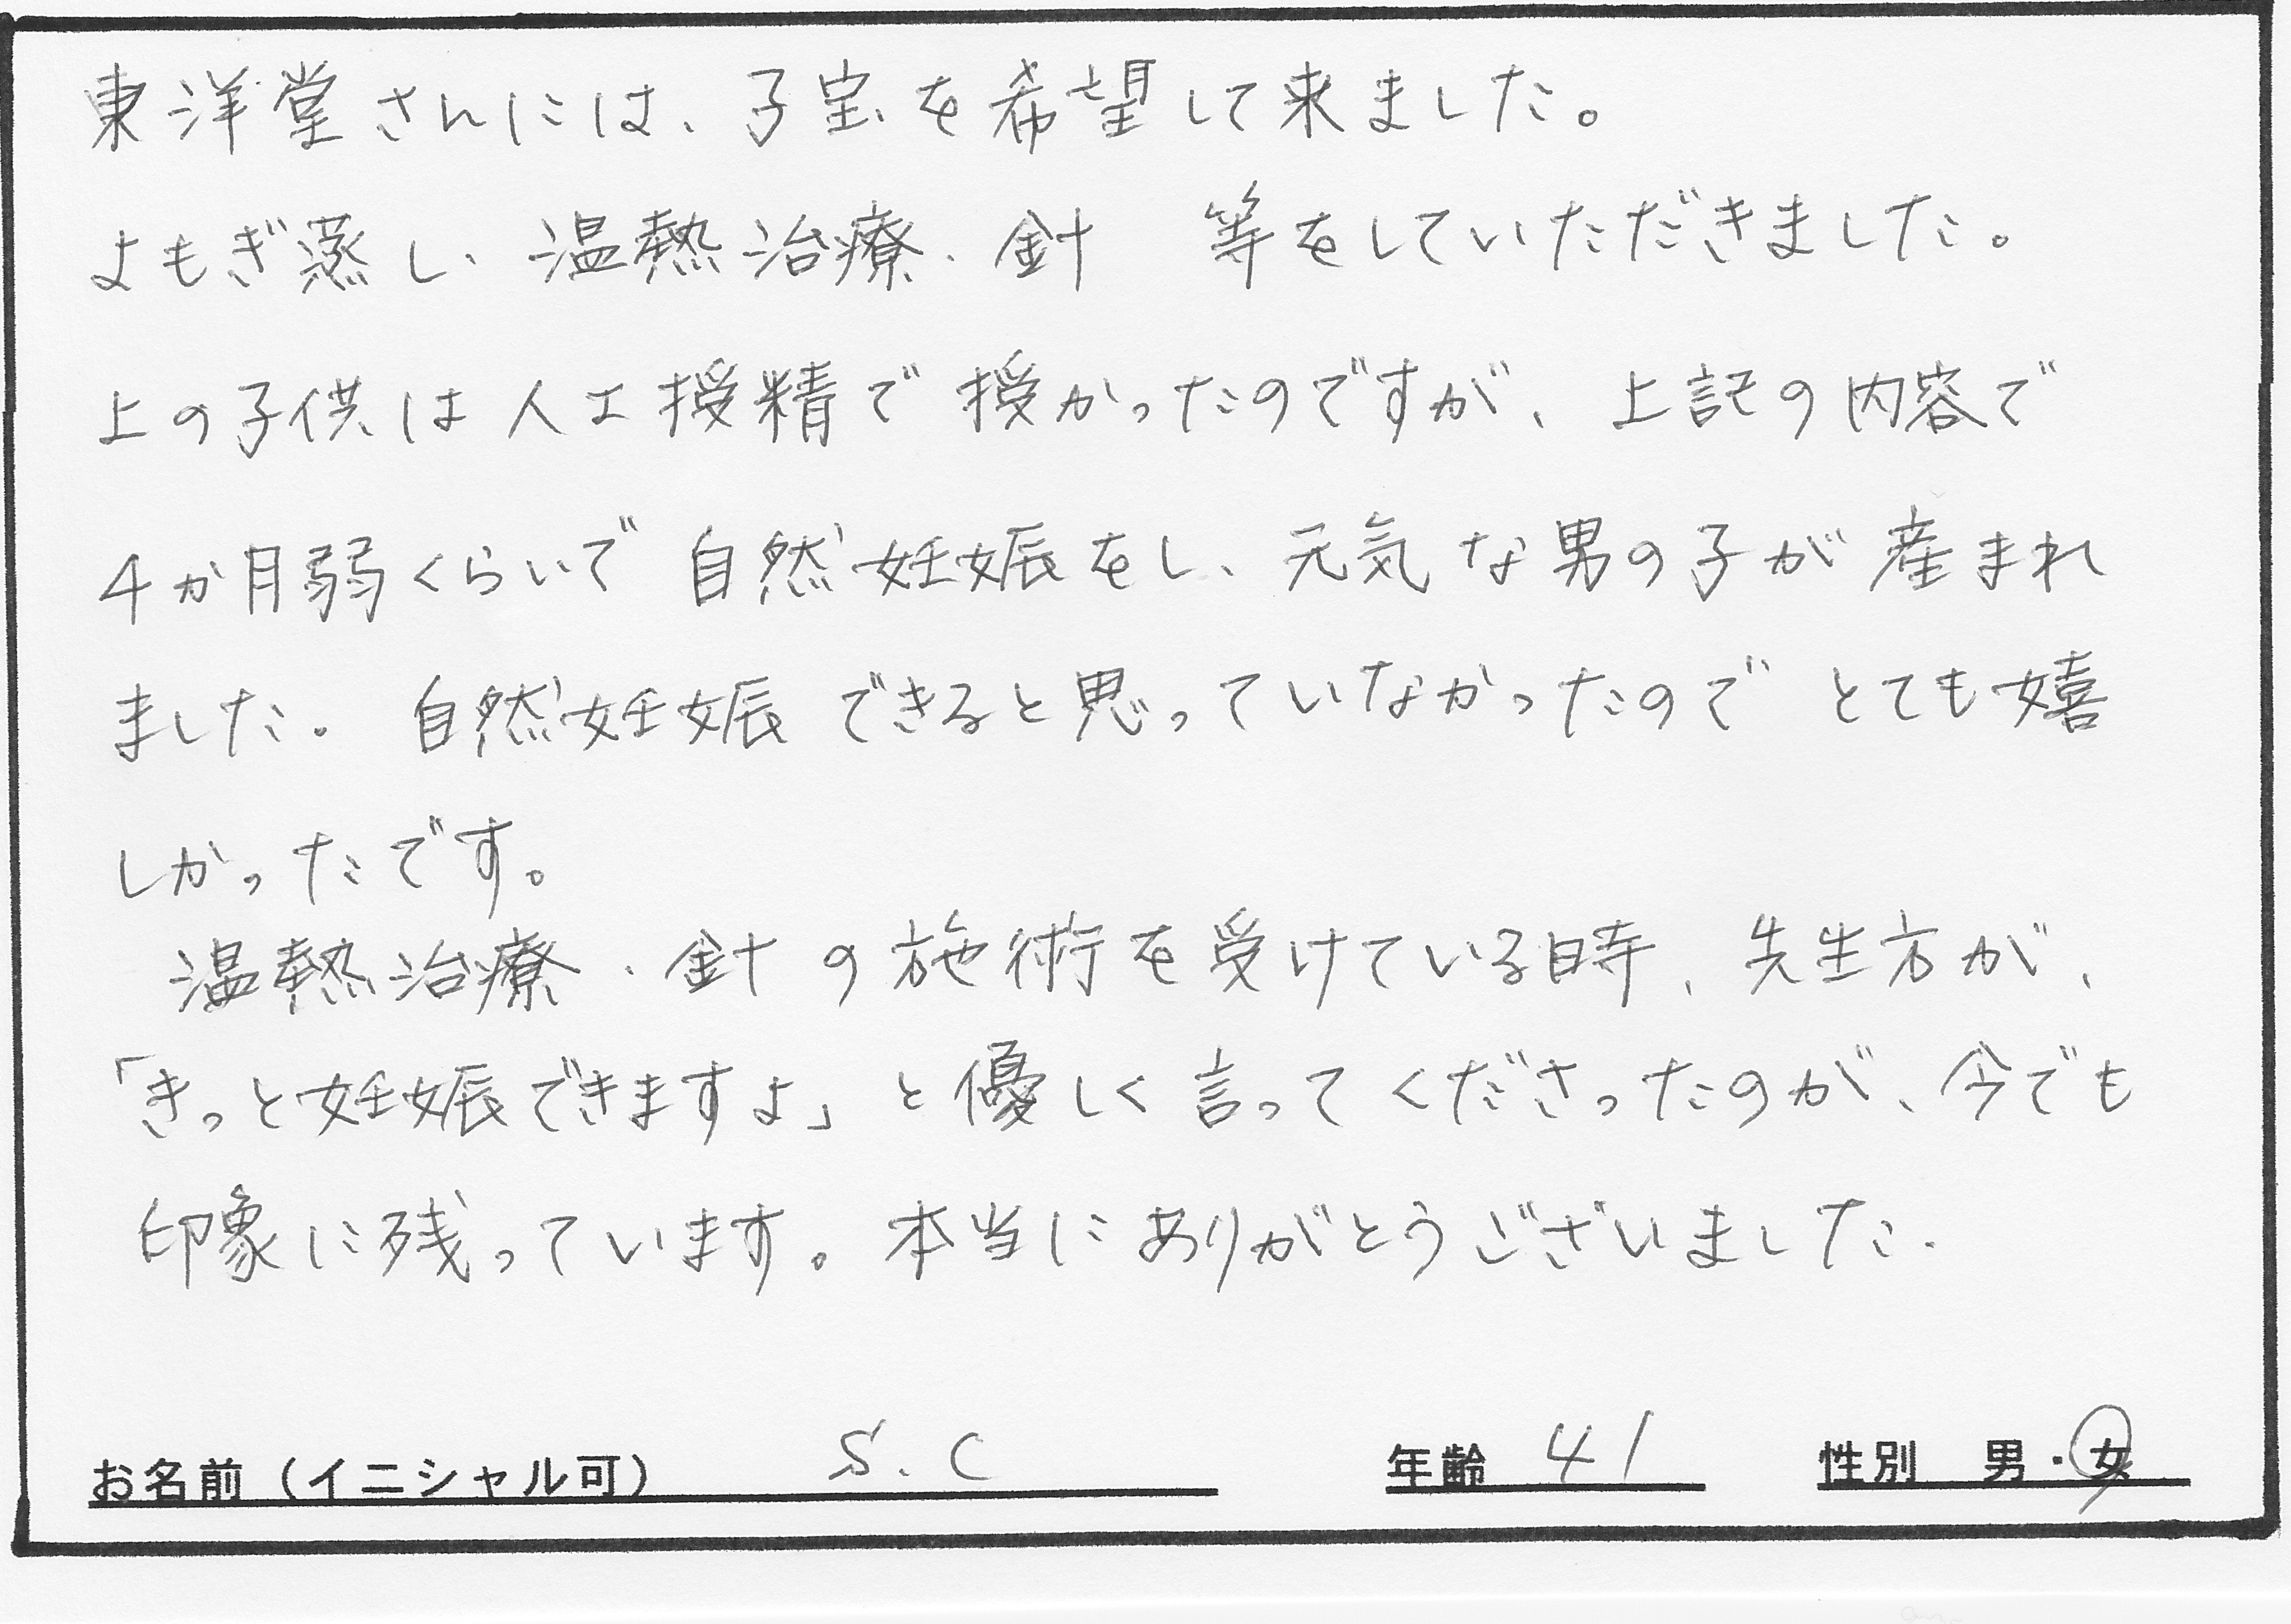 東洋堂さんには、子宝を希望して来ました。
よもぎ蒸し、温熱治療、針　等をしていただきました。
上の子供は人工授精で授かったのですが、上記の内容で
4か月弱くらいで自然妊娠をし、元気な男の子が産まれ
ました。自然妊娠できると思っていなかったのでとても嬉
しかったです。
温熱治療、針の施術を受けている時、先生方が、
「きっと妊娠できますよ」と優しく言ってくださったのが、今でも
印象に残っています。本当にありがとうございました.
お名前（イニシャル可） S.C 年齢 41 性別 男・女